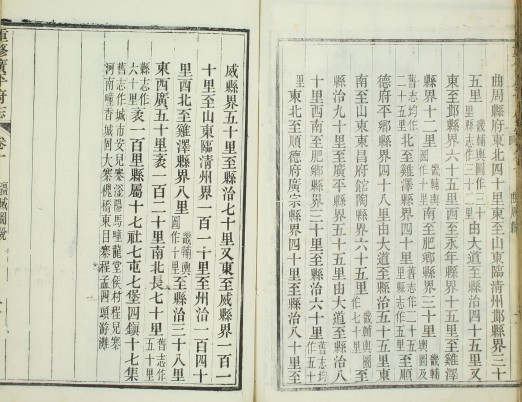 曲周縣府東北四十里東至山東臨清州邱縣界三十
五里畿輔輿圖作三十里縣志作三十二里由大道至縣治四十五里又
東至邱縣界六十五里西至永年縣界十五里至雞澤
縣界十二里畿輔輿圖作十里南至肥鄉縣界三十里畿輔輿圖及
舊志均作二十五里北至雞澤縣界四十里舊志作二十五里縣志作四十里至順
德府平鄉縣界四十五里由大道至縣治五十五里東
南至山東東昌府館陶縣界六十五里畿輔輿圖作七十里至
縣治九十里至廣平縣界五十五里由大道至縣治八
十里西南至肥鄉縣界四十里至縣治六十里舊志均作五十
里東北至順德府廣宗縣界四十里至縣治八十里至
威縣界五十里至縣治七十里又東至威縣界一百一
十里至山東臨清州界一百一十里至州治一百四十
里西北至雞澤縣界八里畿輔輿圖作十里至縣治三十八里
東西廣五十里袤一百二十里南北長七十里舊志作五十里
縣志作六十里袤一百里縣屬十七社七屯七堡四鎮十七集
舊志作城市安兒寨滏陽馬疃龍堂侯村程兒寨
河南疃香城固大寨槐橋東目寨程孟四頭游灘
重修廣平府志
卷十
疆域圖說